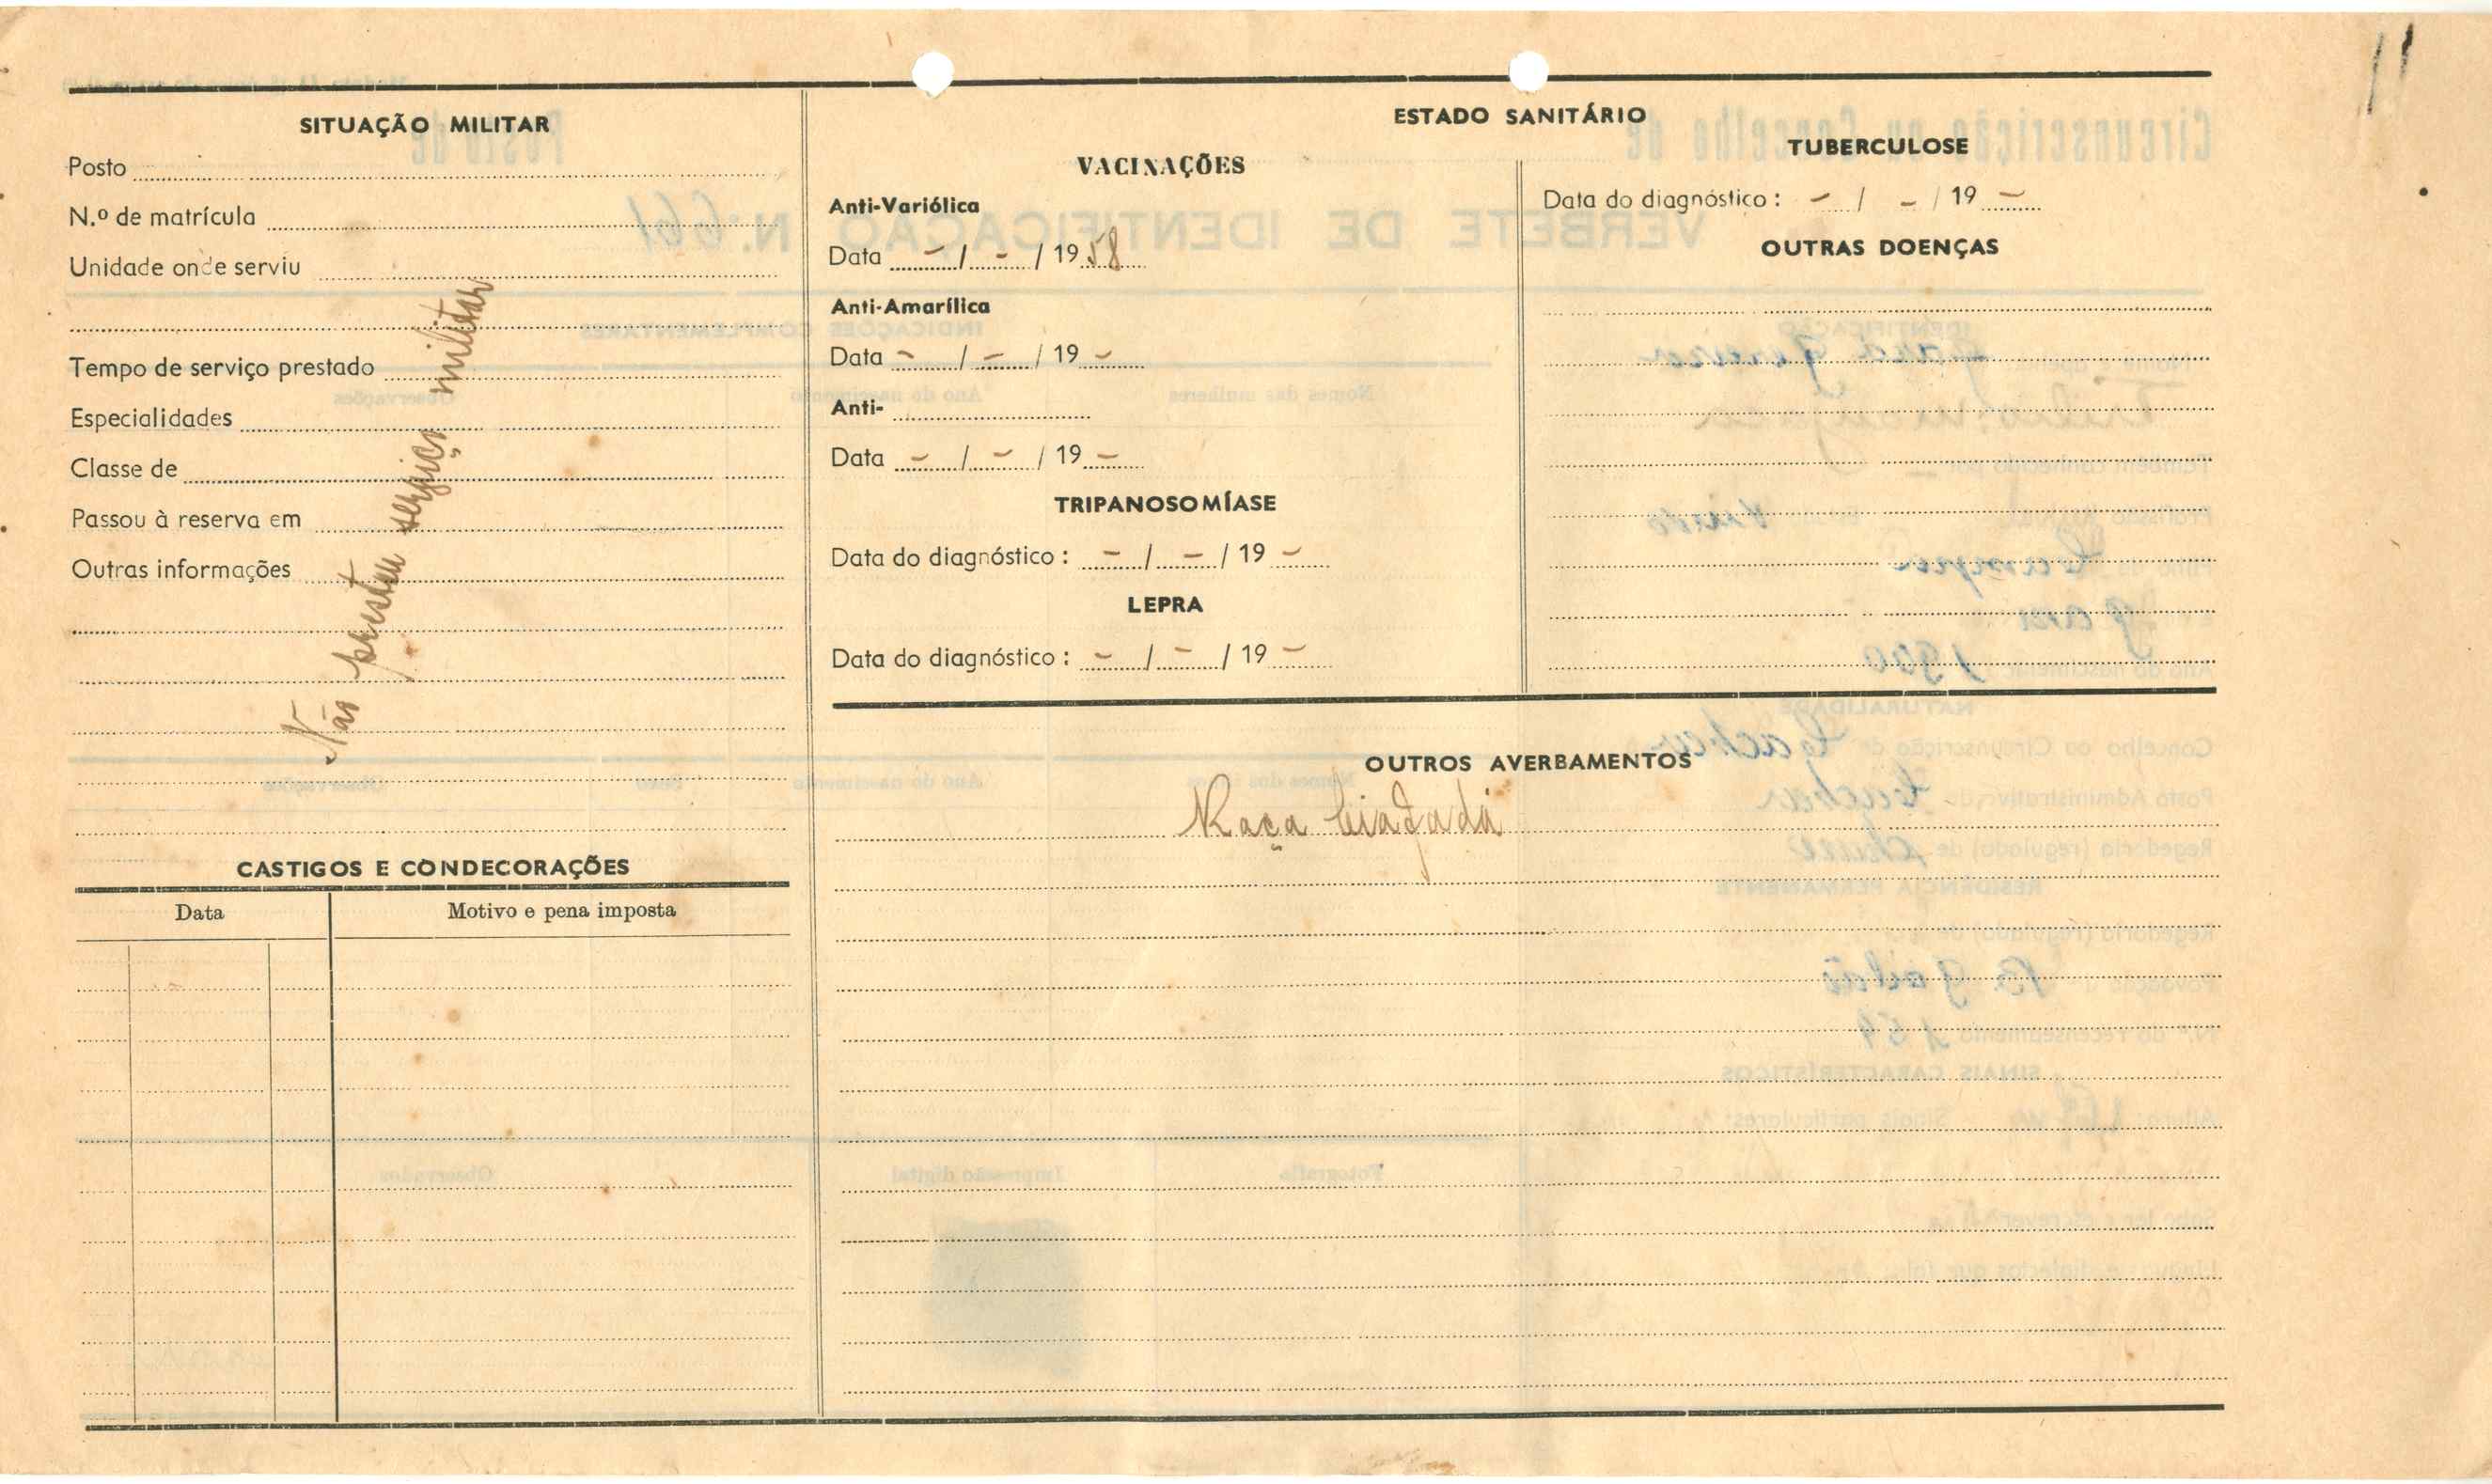 11
SITUAÇÃO MILITAR
Posto
N.º de matrícula
Unidade onde serviu
Tempo de serviço prestado
Especialidades
Classe de
Passou à reserva em
Outras informações
Não prestou serviço militar
CASTIGOS E CONDECORAÇÕES
Data Motivo e pena imposta
ESTADO SANITÁRIO
VACINAÇÕES
Anti-Variólica
Data - / - / 1958
Anti-Amarílica
Data - / - / 19 -
Anti-
Data - / - / 19 -
TRIPANOSOMÍASE
Data do diagnóstico : - / - / 19 -
LEPRA
Data do diagnóstico : - / - / 19 -
TUBERCULOSE
Data do diagnóstico : - / - / 19 -
OUTRAS DOENÇAS
OUTROS AVERBAMENTOS
Raça